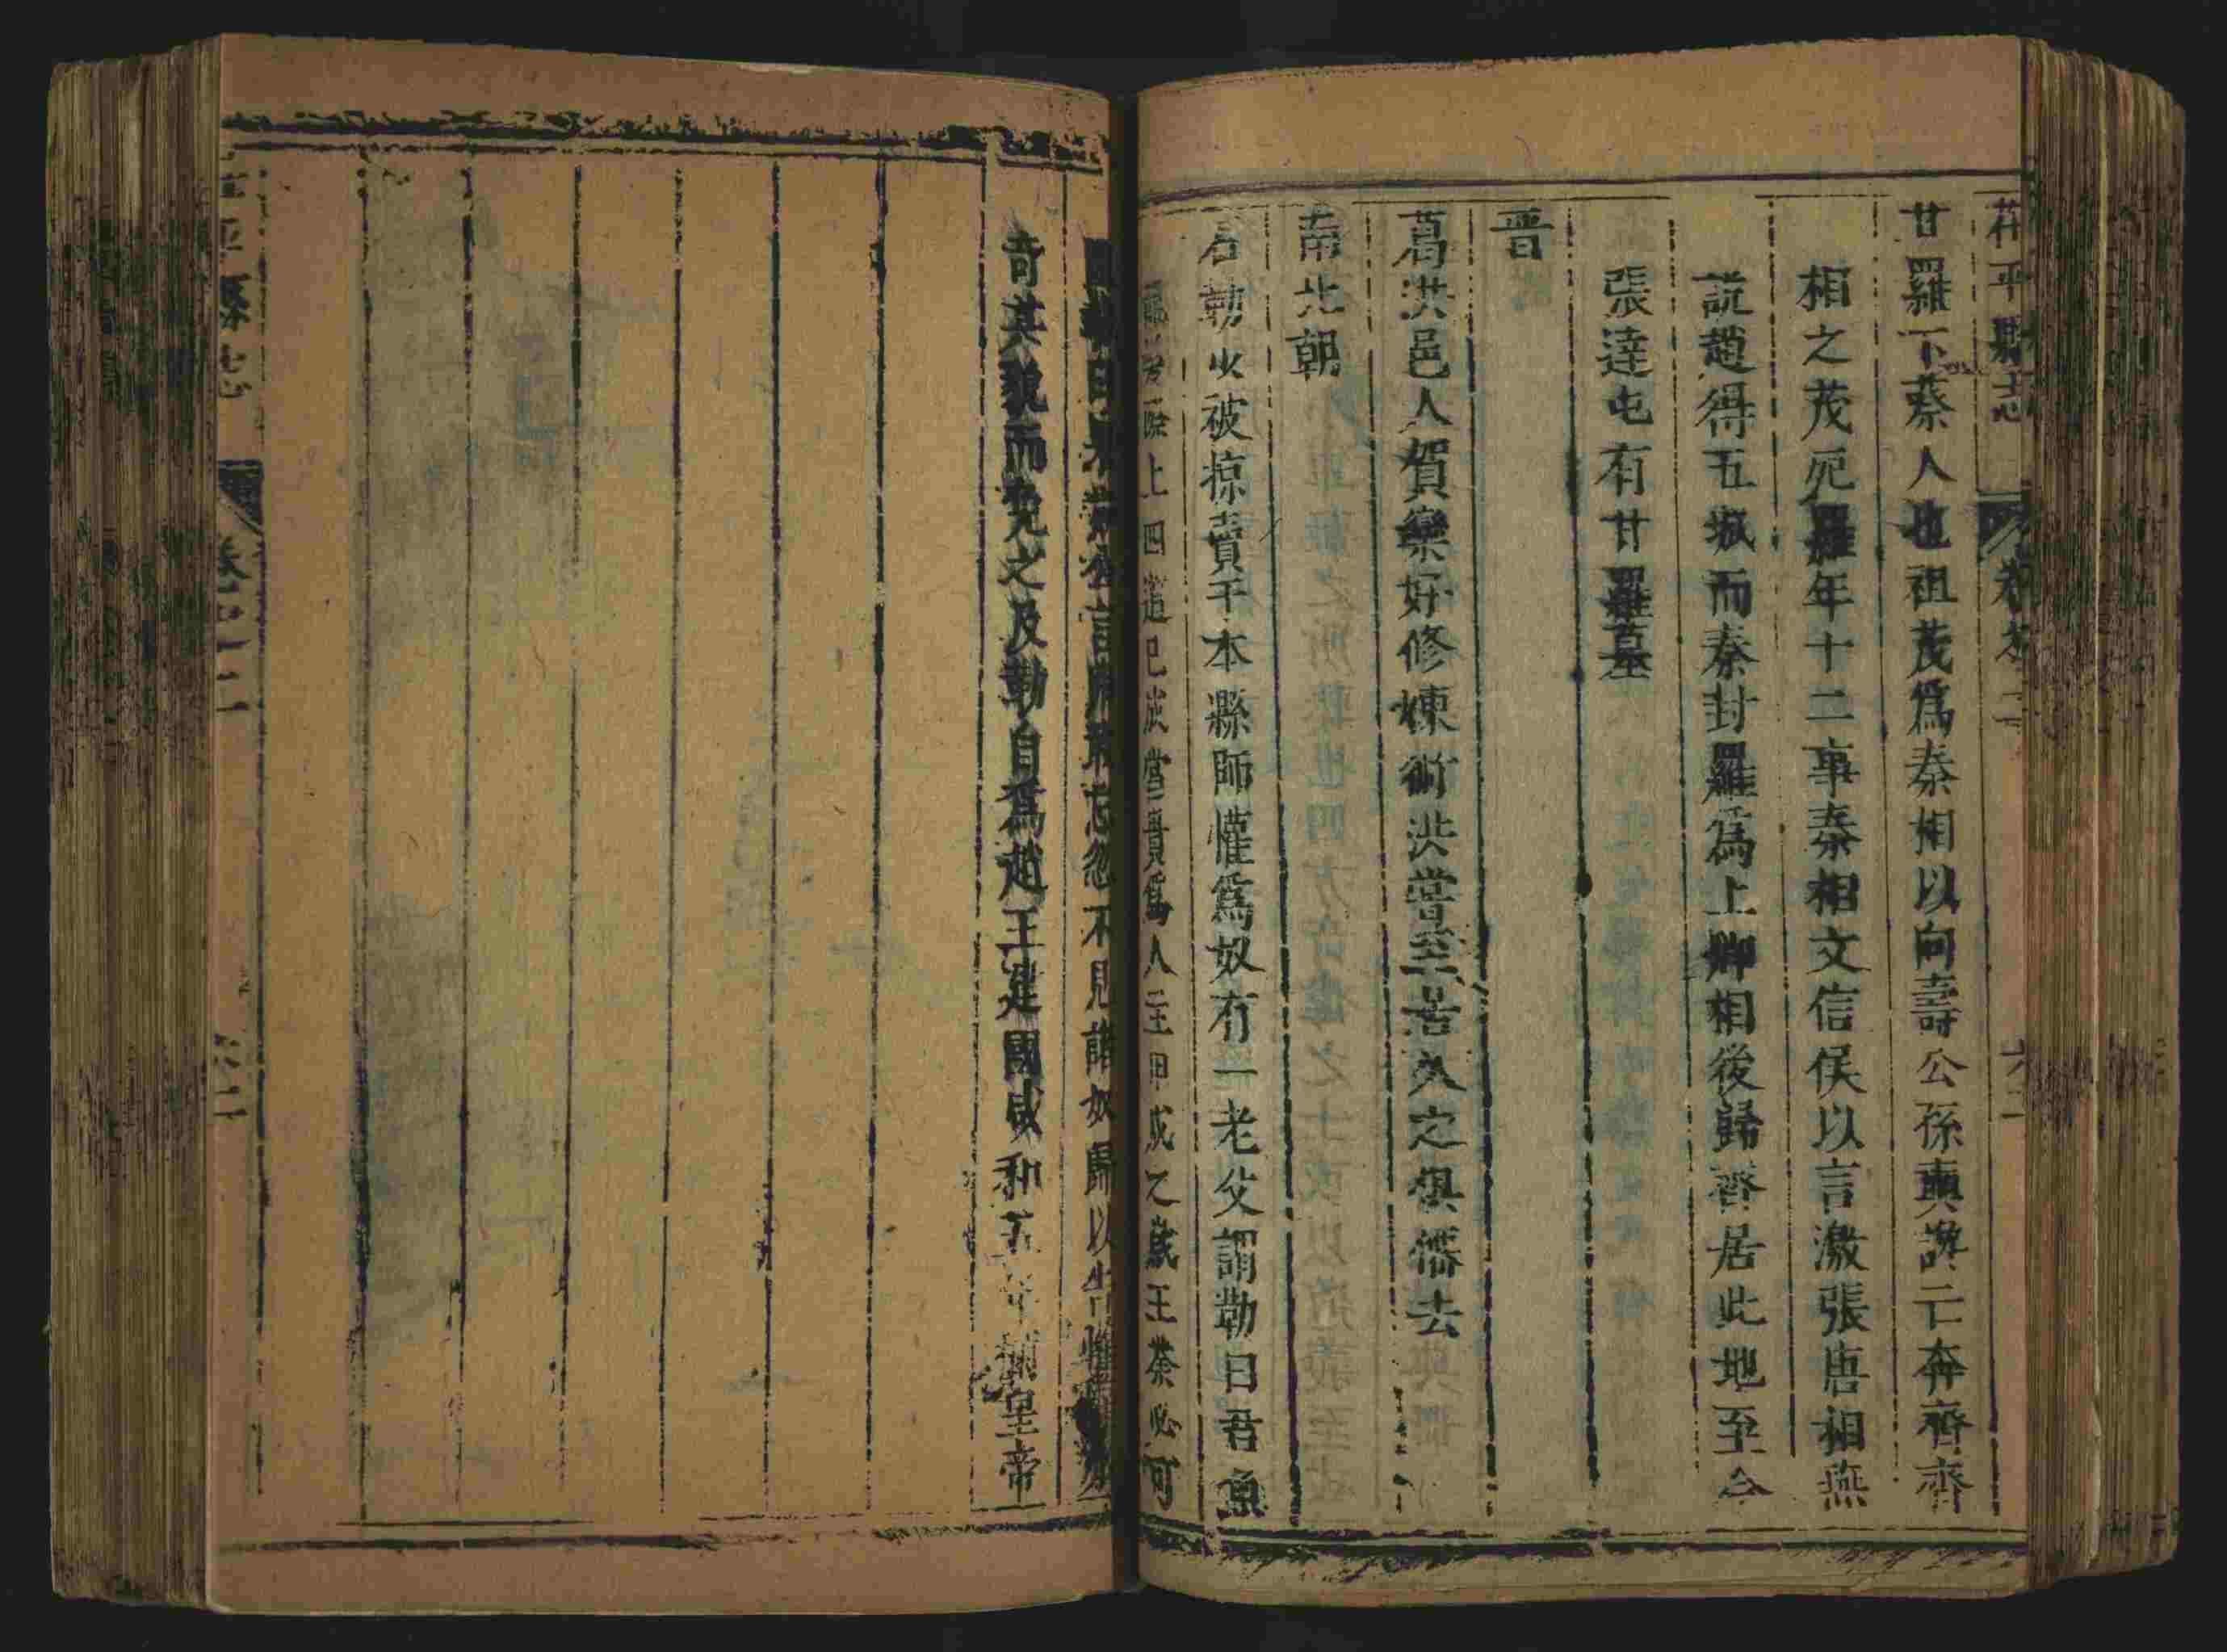 茌平縣志 卷之二 六二
甘羅下蔡人也祖茂爲秦相以向壽公孫奭讒亡奔齊齊
相之茂死羅年十二事秦相文信侯以言激張唐相燕
說趙得五城而秦封羅爲上卿相後歸齊居此地至今
張達屯有甘羅墓
晋
葛洪邑人賀樂好修煉術洪嘗至茌久之俱僊去
南北朝
石勒少被掠賣于本縣師懽爲奴有一老父謂勒曰君魚
龍髮際上四道已成當貴爲人主甲戌之歲王彭必可
圖勒曰若如公言弗敢忘忽不見諸奴歸以告懽懽亦
奇其貌而免之及勒自爲趙王建國咸和五年稱皇帝
茌平縣志 卷之二 六二